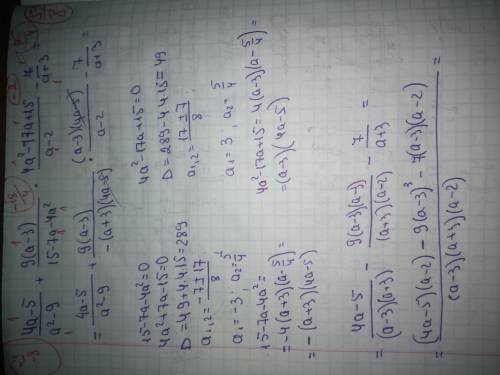 (4a-5)/(a²-9) + 9(a-3)/(15-7a-4a²) · (4a²-17a+15)/(a-2) - 7/(a+3) =
= (4a-5)/(a²-9) + 9(a-3)/(-(a+3)(4a-5)) · (a-3)(4a-5)/(a-2) - 7/(a+3)
15-7a-4a²=0
4a²+7a-15=0
D=49+4·4·15=289
a₁,₂=(-7±17)/8
a₁=-3; a₂=5/4
15-7a-4a²=
=-4(a+3)(a-5/4)=
=-(a+3)(4a-5)
4a²-17a+15=0
D=289-4·4·15=49
a₁,₂=(17±7)/8
a₁=3; a₂=5/4
4a²-17a+15=4(a-3)(a-5/4)=
=(a-3)(4a-5)
= (4a-5)/((a-3)(a+3)) - 9(a-3)(a-3)/((a+3)(a-2)) - 7/(a+3) =
= ((4a-5)(a-2)-9(a-3)³-7(a-3)(a-2))/((a-3)(a+3)(a-2)) =